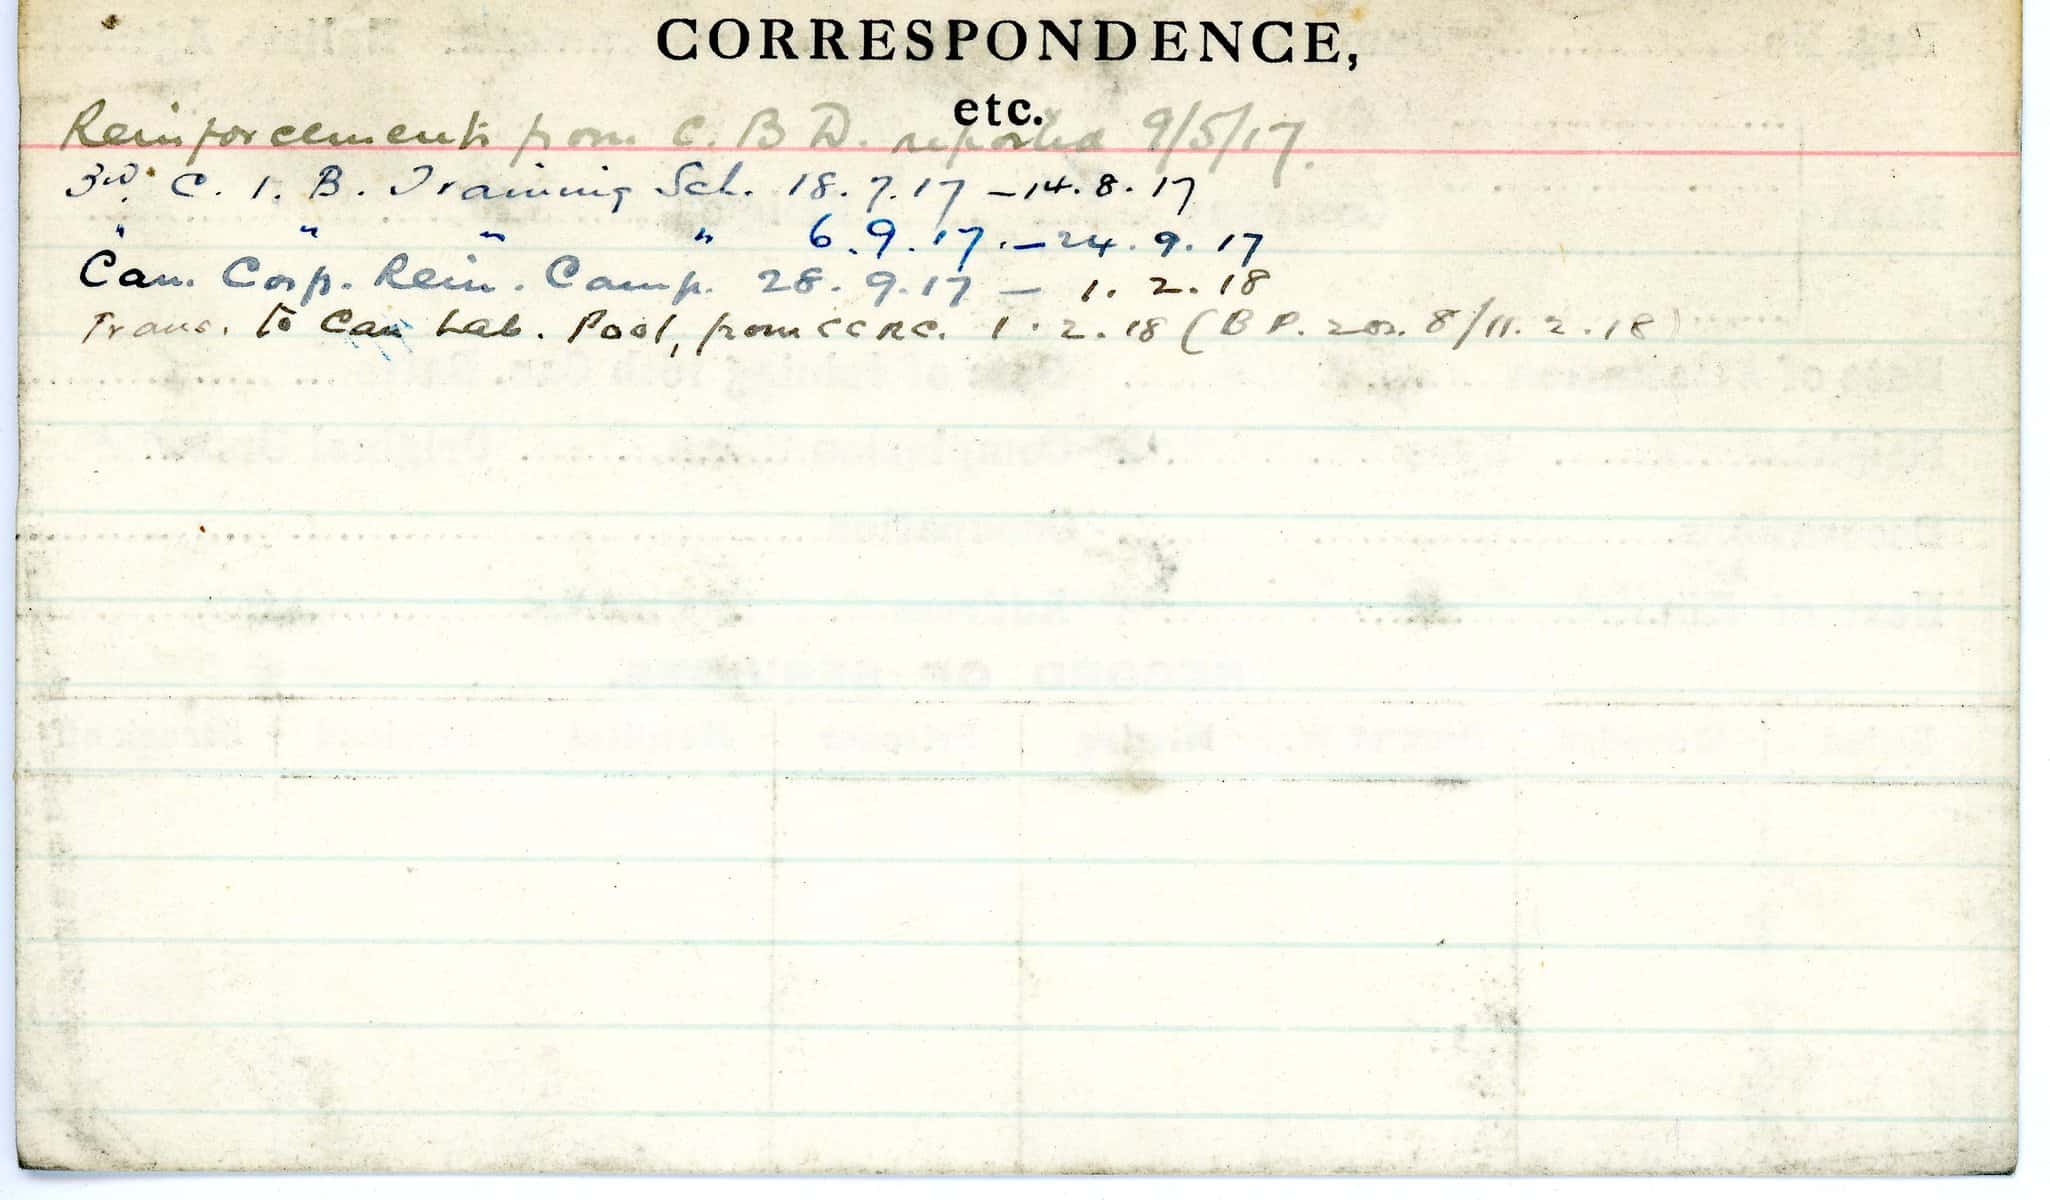 CORRESPONDENCE,
etc.
Reinforcements from C. B D. reported 9/5/17.
3rd. C. I. B. Training Sch. 18.7.17 – 14.8.17
" " " " 6.9.17. – 24.9.17
Can. Corp. Rein. Camp. 28.9.17 – 1.2.18
Trans. to Can Lab. Pool, from CCRC. 1.2.18 (B P. 8/11.2.18)